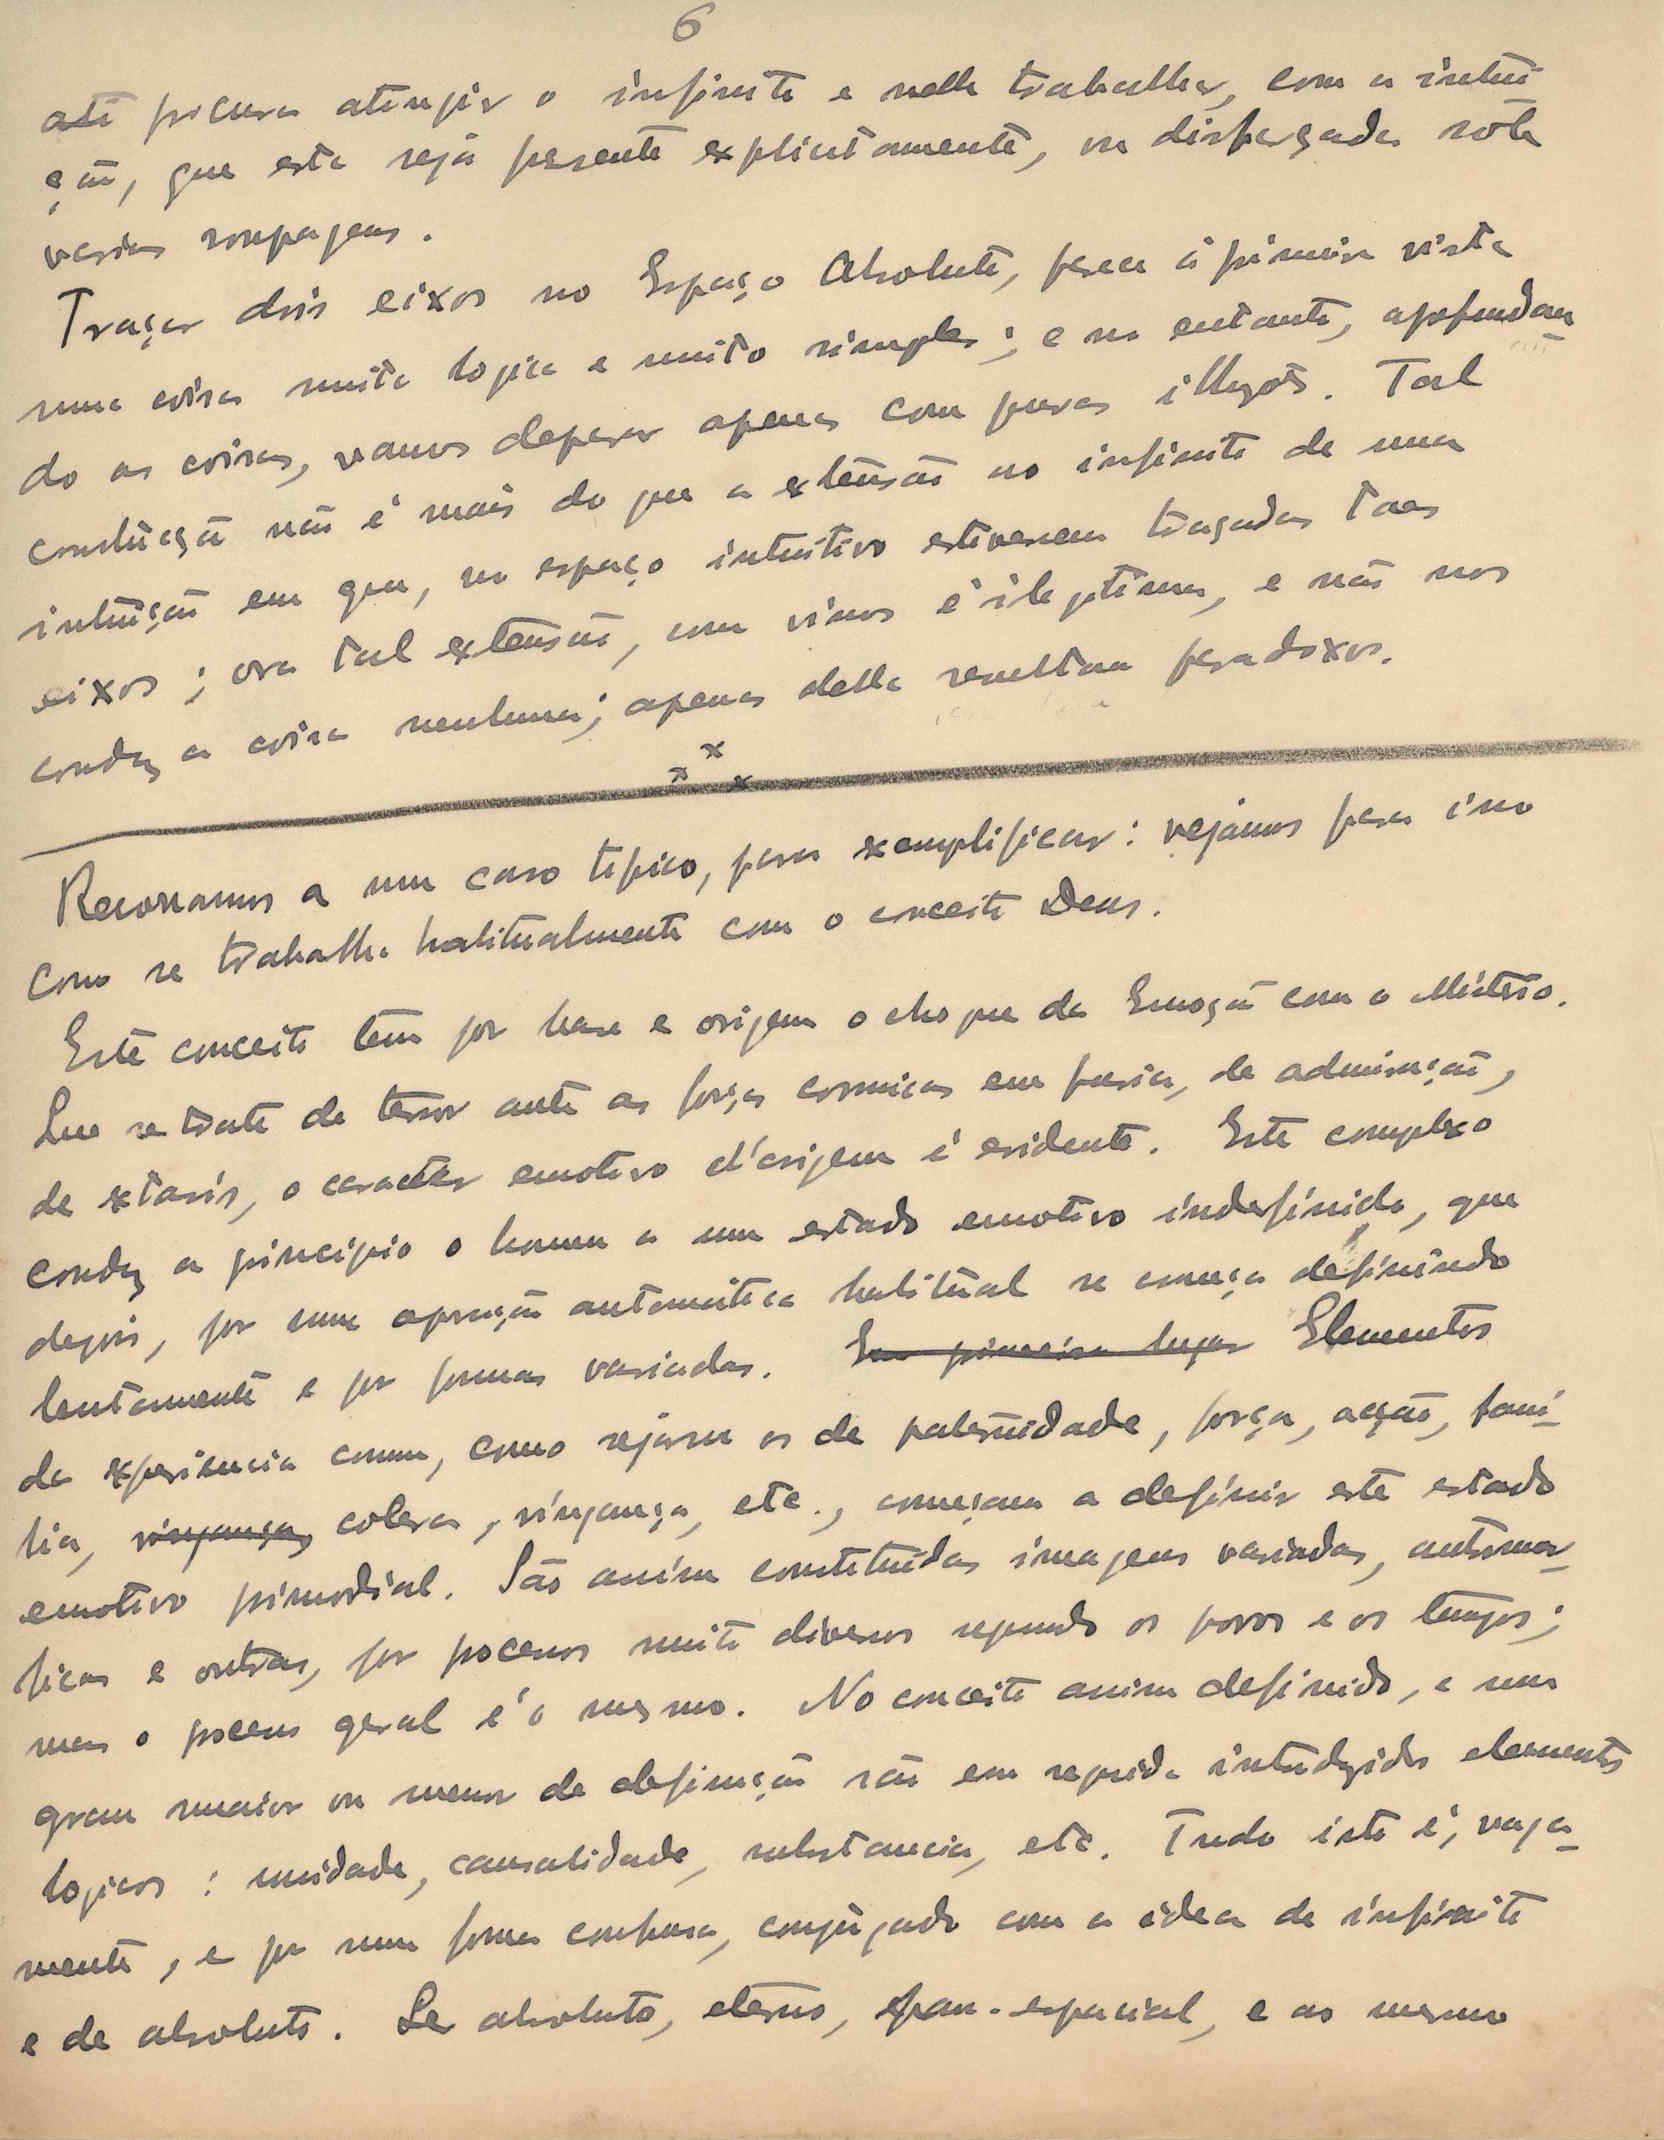 6
até procura atingir o infinito e nelle trabalhar, com a intui
ção, que esta seja presente explicitamente, ou disfarçada sob
varias roupagens.
Traçar dois eixos no Espaço Absoluto, parece á primeira vista
uma coisa muito logica e muito simples; e no entanto, aprofundan
do as coisas, vamos deparar apenas com puras illusões. Tal
construcção não é mais do que a extensão ao infinito de uma
intuição em que, no espaço intuitivo estivessem traçados taes
eixos; ora tal extensão, como vimos é ilegitima, e não nos
conduz a coisa nenhuma; apenas della resultam paradoxos.
x x x
Recorramos a um caso tipico, para exemplificar: vejamos para isso
como se trabalha habitualmente com o conceito Deus.
Este conceito tem por base e origem o choque da Emoção com o Misterio.
Que se trate de terror ante as forças cosmicas em furia, de admiração,
de extasis, o caracter emotivo d'origem é evidente. Este complexo
conduz a principio o homem a um estado emotivo indefinido, que
depois, por uma operação automatica habitual se começa definindo
lentamente e por formas variadas. Em primeiro lugar Elementos
da experiencia comum, como sejam os de paternidade, força, acção, fami-
lia, vingança, colera, vingança, etc., começam a definir este estado
emotivo primordial. São assim constituidas imagens variadas, automa-
ticas e outras, por processos muito diversos segundo os povos e os tempos;
mas o processo geral é o mesmo. No conceito assim definido, e num
grau maior ou menor de definição são em seguida introduzidos elementos
logicos: unidade, causalidade, substancia, etc. Tudo isto é, vaga-
mente, e por uma forma confusa, conjugado com a idea de infinito
e de absoluto. Ser absoluto, eterno, pan-espacial, e ao mesmo